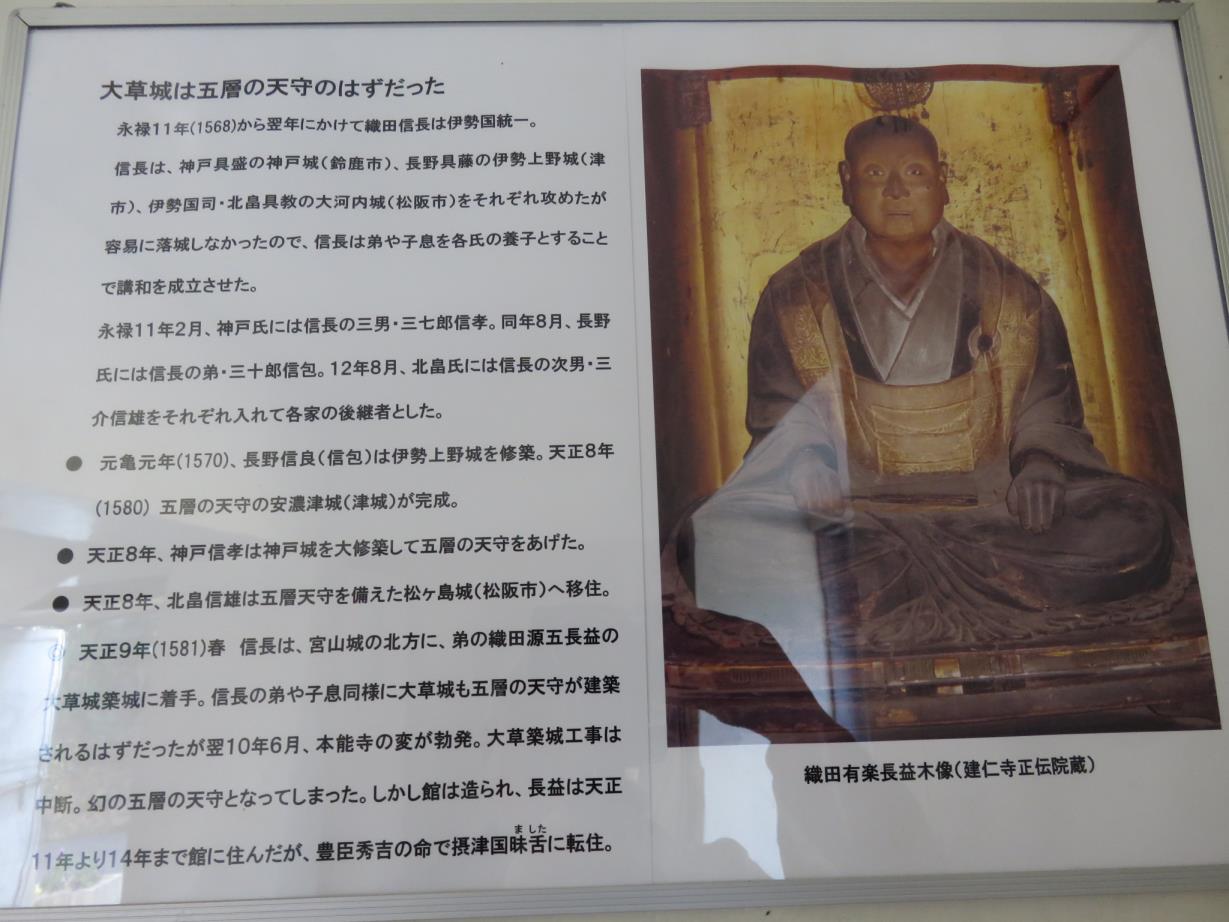 大草城は五層の天守のはずだった
永禄11年(1568)から翌年にかけて織田信長は伊勢国統一。
信長は、神戸具盛の神戸城(鈴鹿市)、長野具藤の伊勢上野城(津
市)、伊勢国司・北畠具教の大河内城(松阪市)をそれぞれ攻めたが
容易に落城しなかったので、信長は弟や子息を各氏の養子とすること
で講和を成立させた。
永禄11年2月、神戸氏には信長の三男・三七郎信孝。同年8月、長野
氏には信長の弟・三十郎信包。12年8月、北畠氏には信長の次男・三
介信雄をそれぞれ入れて各家の後継者とした。
● 元亀元年(1570)、長野信良(信包)は伊勢上野城を修築。天正8年
(1580) 五層の天守の安濃津城(津城)が完成。
● 天正8年、神戸信孝は神戸城を大修築して五層の天守をあげた。
● 天正8年、北畠信雄は五層天守を備えた松ヶ島城(松阪市)へ移住。
◎ 天正9年(1581)春 信長は、宮山城の北方に、弟の織田源五長益の
大草城築城に着手。信長の弟や子息同様に大草城も五層の天守が建築
されるはずだったが翌10年6月、本能寺の変が勃発。大草築城工事は
中断。幻の五層の天守となってしまった。しかし館は造られ、長益は天正
ました
11年より14年まで館に住んだが、豊臣秀吉の命で摂津国味舌に転住。
織田有楽長益木像(建仁寺正伝院蔵)